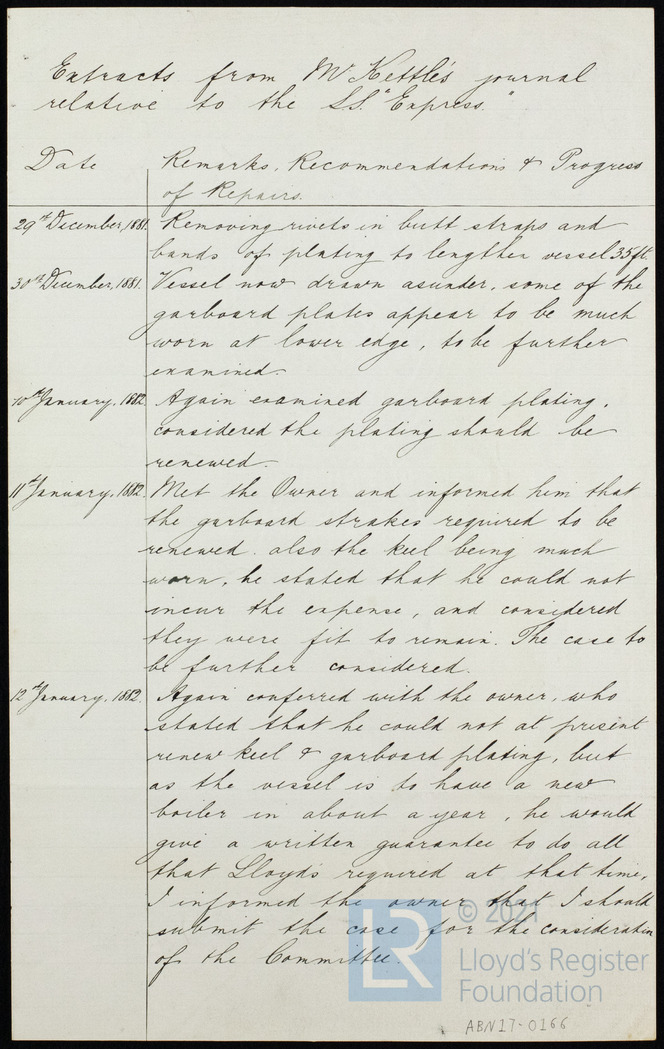 Extracts from Mr Kettle's journal
relative to the S.S. "Express."
Date
Remarks, Recommendations & Progress
of Repairs.
29th December, 1881.
Removing rivets in butt straps and
bands of plating to lengthen vessel 35 ft.
30th December, 1881.
Vessel now drawn asunder, some of the
garboard plates appear to be much
worn at lower edge, to be further
examined.
10th January, 1882.
Again examined garboard plating,
considered the plating should be
renewed.
11th January, 1882.
Met the Owner and informed him that
the garboard strakes required to be
renewed. also the keel being much
worn, he stated that he could not
incur the expense, and considered
they were fit to remain. The case to
be further considered.
12th January, 1882.
Again conferred with the owner, who
stated that he could not at present
renew keel & garboard plating, but
as the vessel is to have a new
boiler in about a year, he would
give a written guarantee to do all
that Lloyds required at that time,
I informed the owner that I should
submit the case for the consideration
of the Committee.
LR
© 2021
Lloyd's Register
Foundation
ABN17-0166